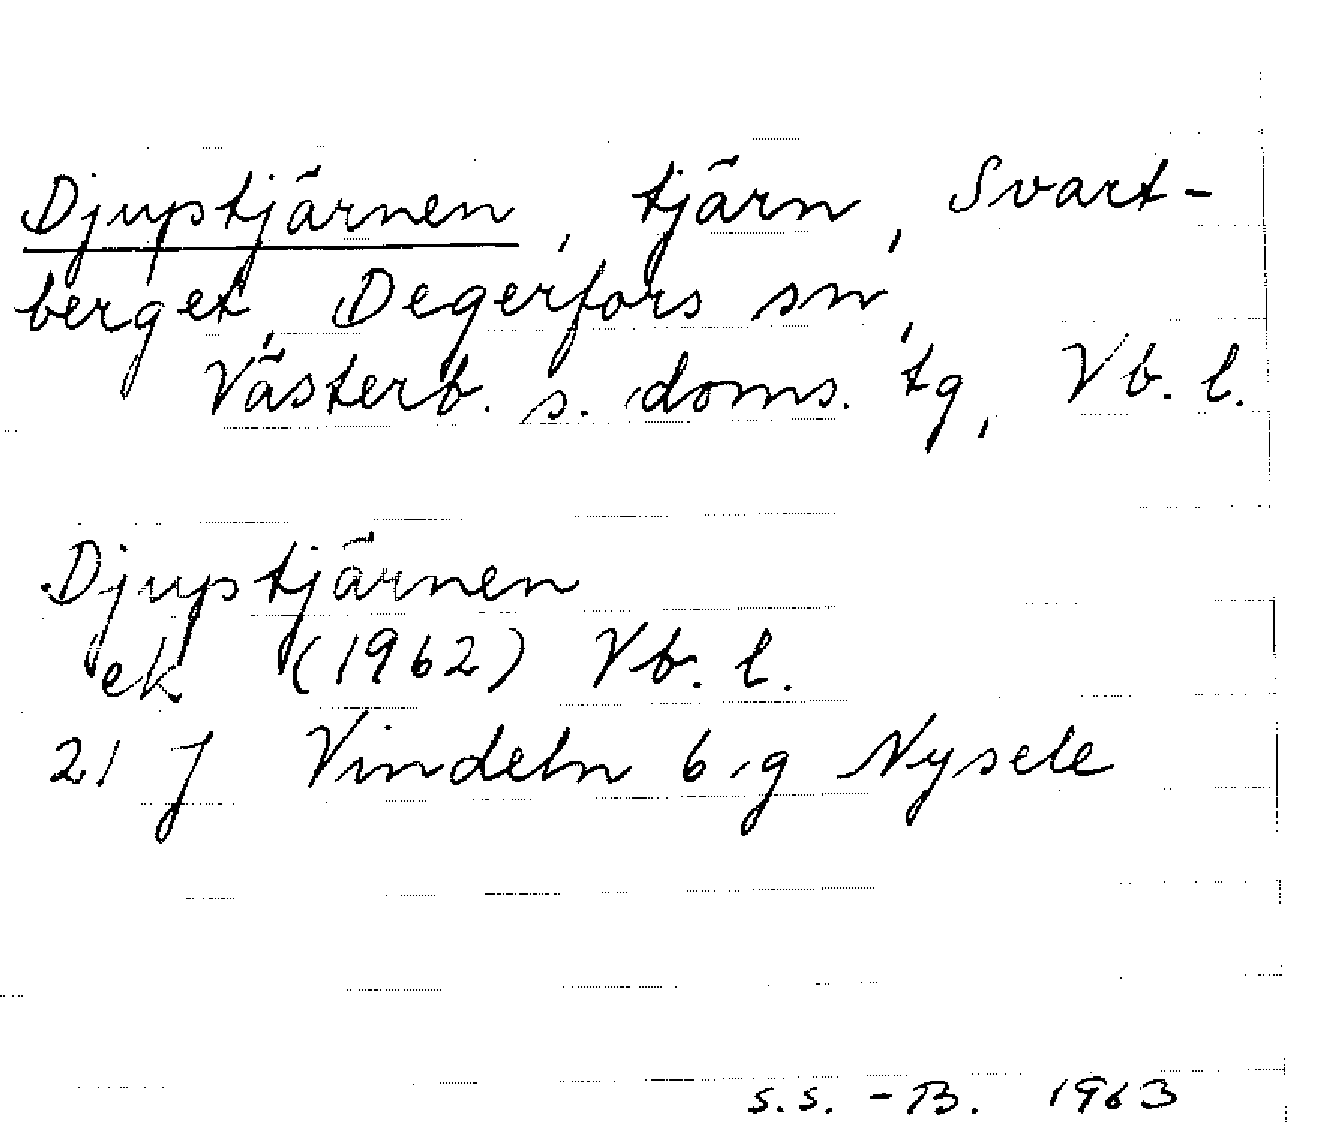 Djuptjärnen, tjärn, Svart-
berget, Degerfors sn,
Västerb. s. doms. tg, Vb. l.
Djuptjärnen
ek (1962) Vb. l.
21 J Vindeln 6 g Nysele
s.s. -B. 1963